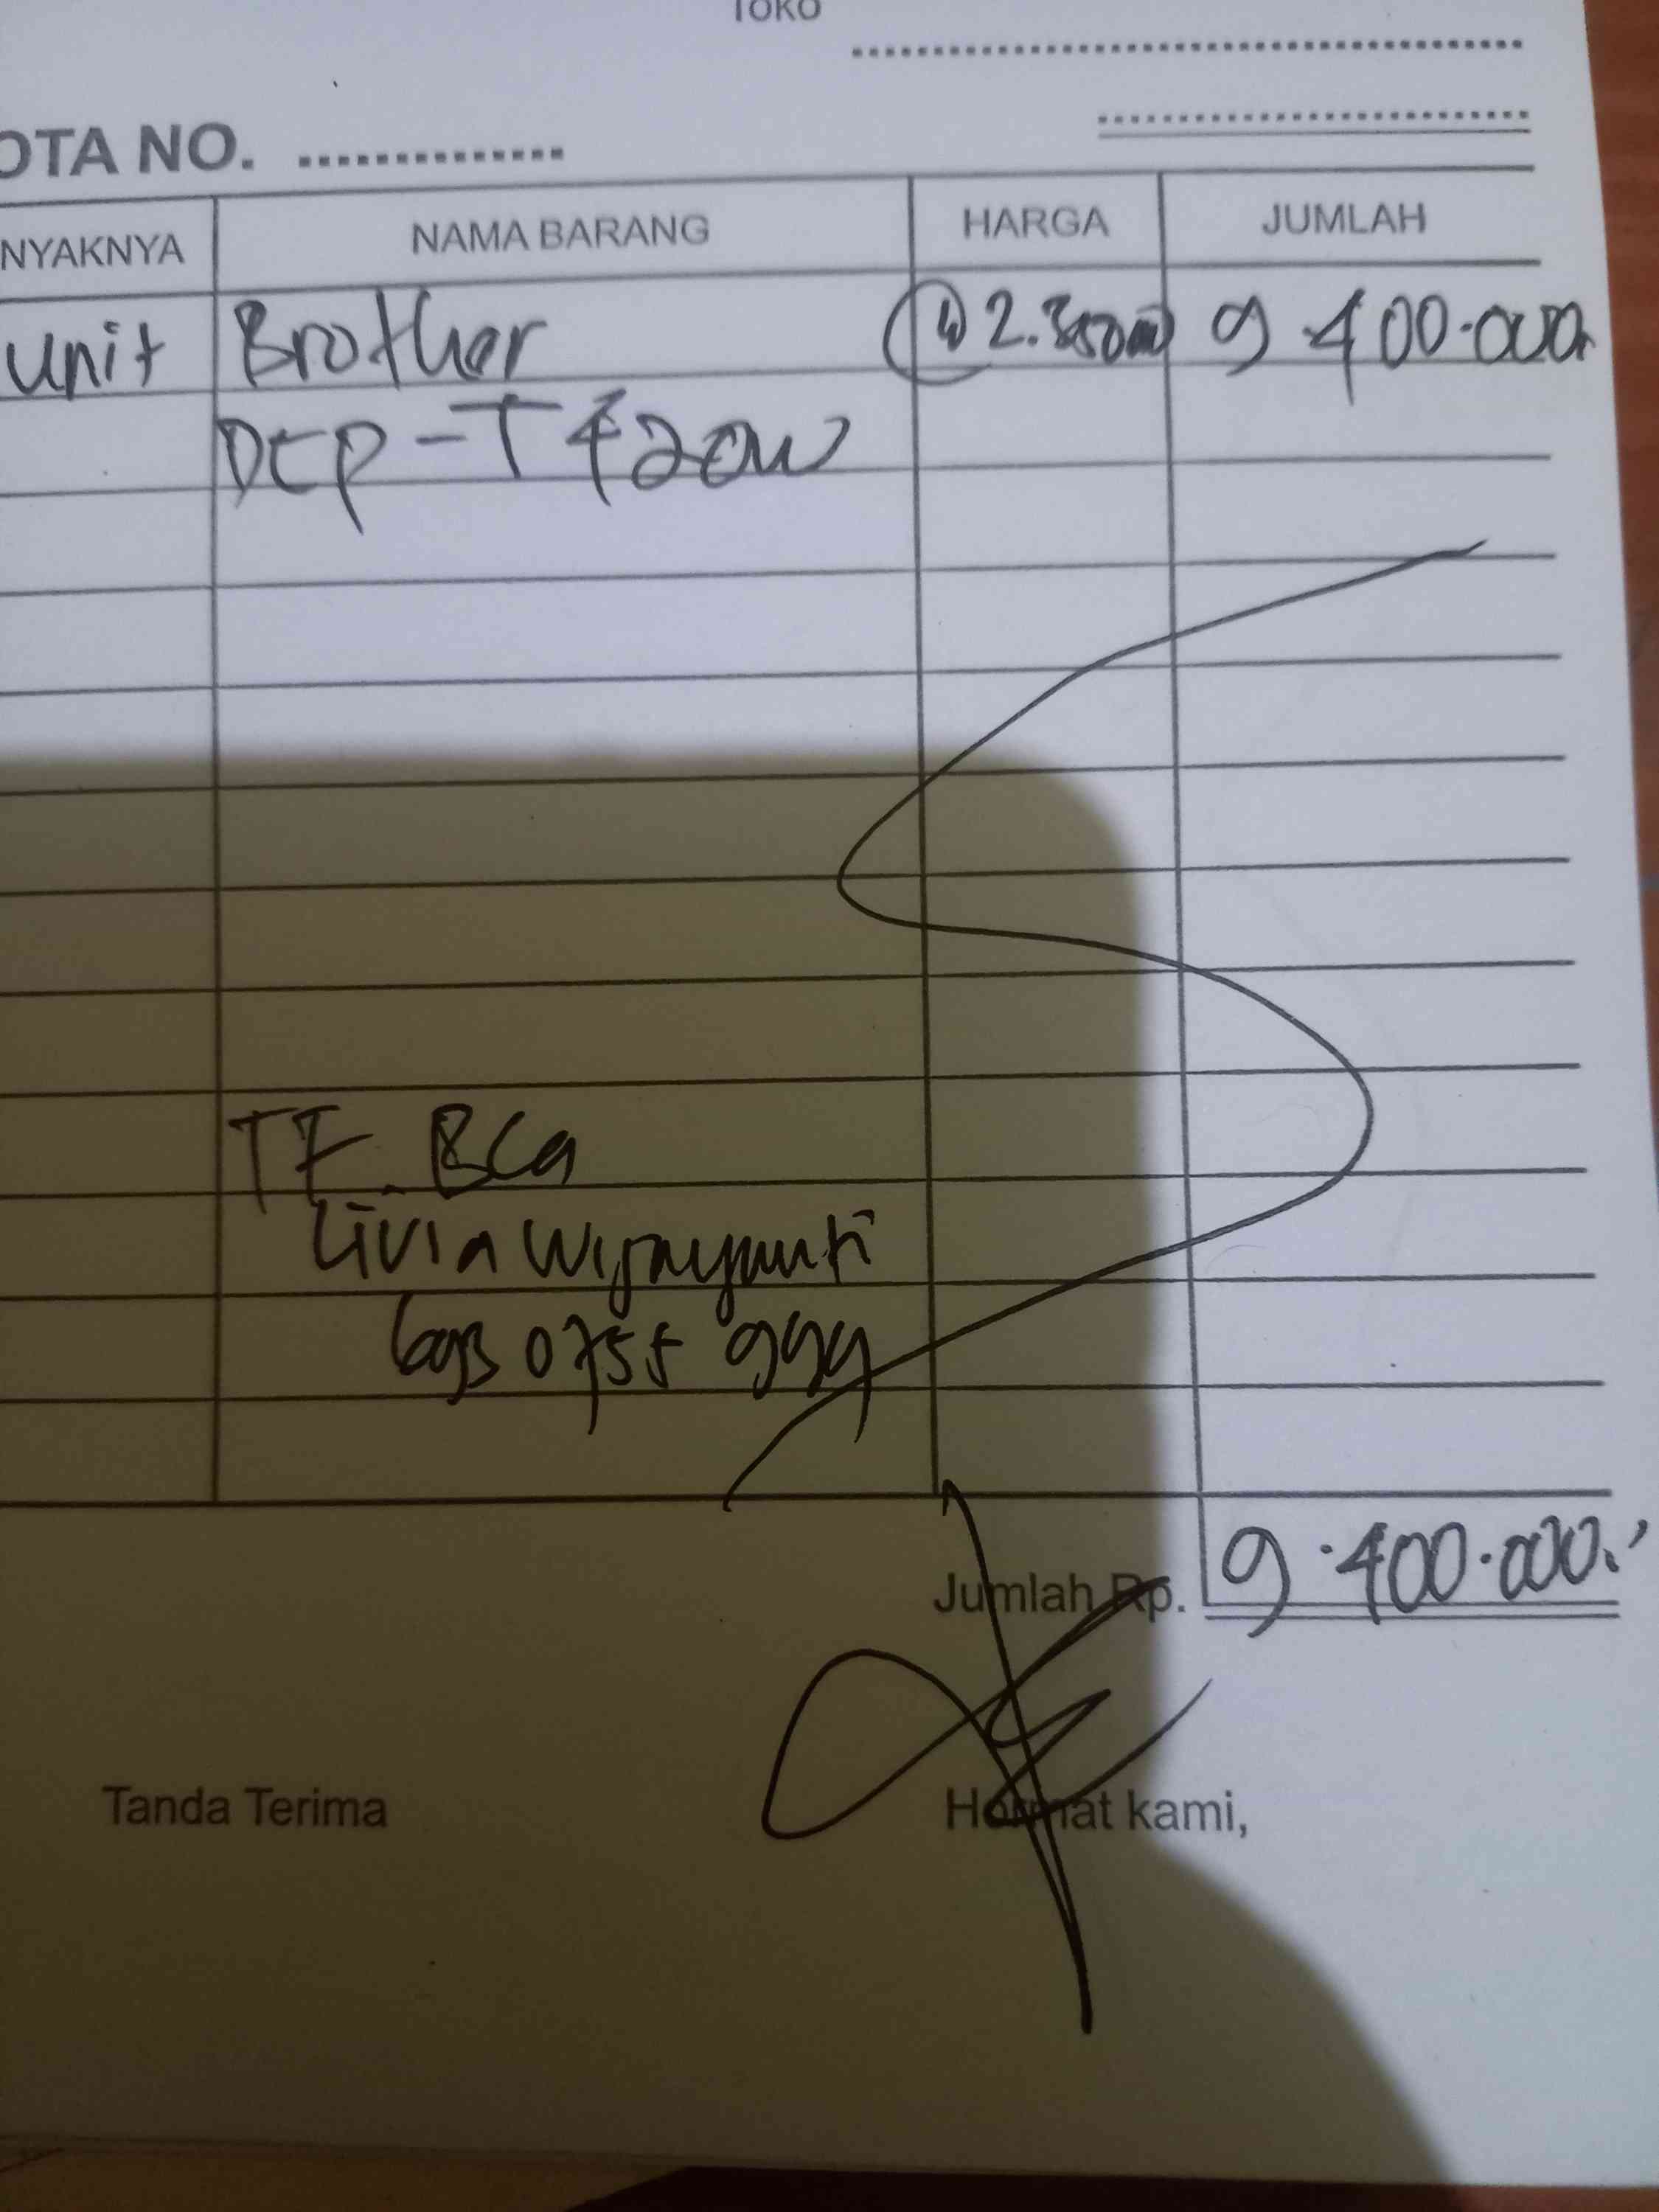 TOKO
OTA NO. ..............
NYAKNYA NAMA BARANG HARGA JUMLAH
unit Brother @ 2.350.000 9.400.000,
DCP-T420W
TF. BCA
Livia Wijayanti
6093 0755 999
Jumlah Rp. 9.400.000,
Tanda Terima Hormat kami,